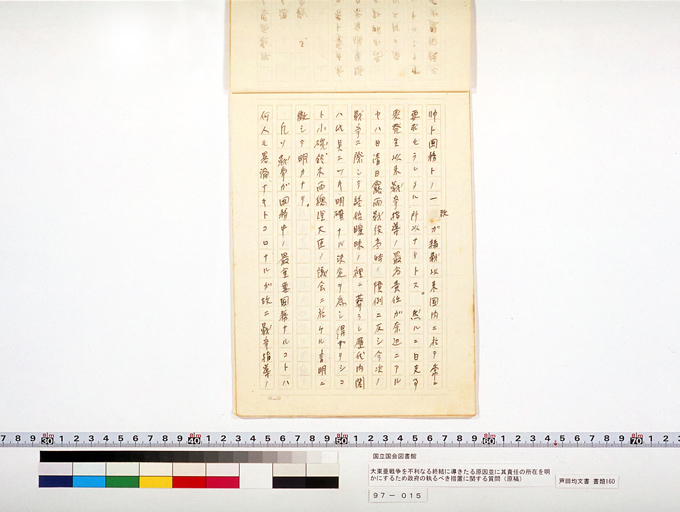 帥ト国務トノ一致ガ緒戦以来国内ニ於テ常ニ
要求セラレタル所以ナリトス。然ルニ日支事
変発生以来戦争指導ノ最高責任ガ奈辺ニアル
ヤハ日清日露両戦役当時ノ慣例ニ反シ今次ノ
戦争ニ際シテ終始曖昧ノ裡ニ葬ラレ歴代内閣
ハ此点ニツキ明確ナル決定ヲ為シ得ザリシコ
ト小磯鈴木両総理大臣ノ議会ニ於ケル言明ニ
徴シテ明カナリ。
凡ソ戦争ガ国務中ノ最重要国務ナルコトハ
何人モ異論ナキトコロナルガ故ニ戦争指導ノ
国立国会図書館
大東亜戦争を不利なる終結に導きたる原因並に其責任の所在を明
かにするため政府の執るべき措置に関する質問(原稿)
芦田均文書 書類160
97-015